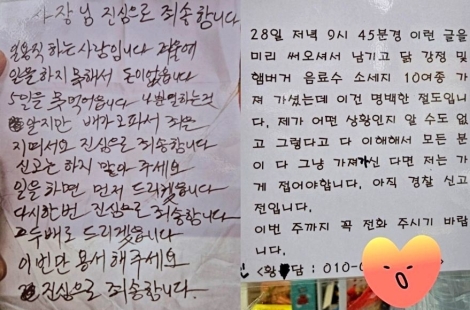 사장님 진심으로 죄송합니다
일용직 하는 사람입니다 겨울에
일을 하지 못해서 돈이없습니다
5일을 못먹었습니다 나쁜일하는것
알지만 배가고파서 죄를
지며서요 진심으로 죄송합니다
신고는 하지 말아 주세요
일을 하면 먼저 드리겠습니다
다시한번 진심으로 죄송합니다
두배로 드리겠습니다
이번만 용서해주세요
진심으로 죄송합니다.
28일 저녁 9시 45분경 이런 글을
미리 써오셔서 남기고 닭 강정 및
햄버거 음료수 소세지 10여종 가
져 가셨는데 이건 명백한 절도입니
다. 제가 어떤 상황인지 알 수도 없
고 그렇다고 다 이해해서 모든 분
이 다 그냥 가져가신 다면 저는 가
게 접어야합니다. 아직 경찰 신고
전입니다.
이번 주까지 꼭 전화 주시기 바랍
니다.
담 : 010-